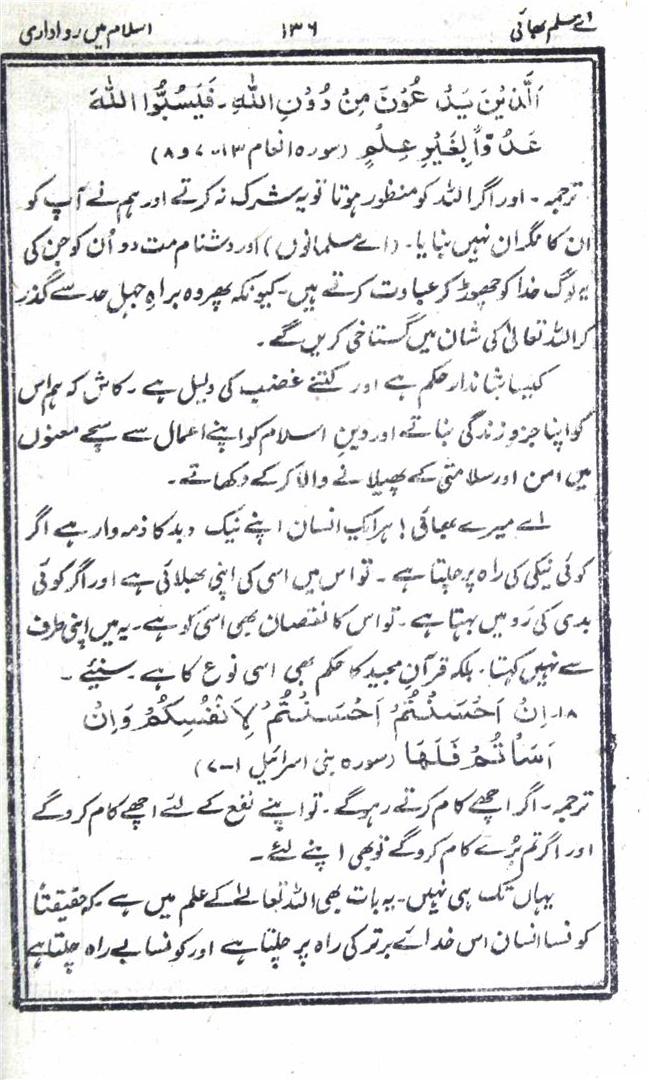 اے مسلم بھائی ۱۳۶ اسلام میں رواداری
اَلَّذِیْنَ یَدْعُوْنَ مِنْ دُوْنِ اللّٰہِ۔ فَیَسُبُّوا اللّٰہَ
عَدْوًّا بِغَیْرِ عِلْمٍ (سورہ انعام ۱۳۔ ۷ و ۸)
ترجمہ۔ اور اگر اللہ کو منظور ہوتا تو یہ شرک نہ کرتے اور ہم نے آپ کو
ان کا نگران نہیں بنایا۔ (اے مسلمانوں) اور دشنام مت دو اُن کو جن کی
یہ لوگ خدا کو چھوڑ کر عبادت کرتے ہیں۔ کیونکہ پھر وہ براہِ جہل حد سے گذر
کر اللہ تعالیٰ کی شان میں گستاخی کریں گے۔
کیسا شاندار حکم ہے اور کتنے غضب کی دلیل ہے۔ کاش کہ ہم اس
کو اپنا جزوِ زندگی بناتے اور دینِ اسلام کو اپنے اعمال سے سچے معنوں
میں امن اور سلامتی کے پھیلانے والا کر کے دکھاتے۔
اے میرے بھائی! ہر ایک انسان اپنے نیک و بد کا ذمہ وار ہے اگر
کوئی نیکی کی راہ پر چلتا ہے۔ تو اس میں اسی کی اپنی بھلائی ہے اور اگر کوئی
بدی کی رَو میں بہتا ہے۔ تو اس کا نقصان بھی اسی کو ہے۔ یہ میں اپنی طرف
سے نہیں کہتا۔ بلکہ قرآنِ مجید کا حکم بھی اسی نوع کا ہے۔ سنیئے۔
۱۸۔ اِنْ اَحْسَنْتُمْ اَحْسَنْتُمْ لِاَنْفُسِکُمْ وَاِنْ
اَسَأْتُمْ فَلَھَا (سورہ بنی اسرائیل ۱۔۷)
ترجمہ۔ اگر اچھے کام کرتے رہو گے۔ تو اپنے نفع کے لئے اچھے کام کرو گے
اور اگر تم بُرے کام کرو گے تو بھی اپنے لئے۔
یہاں تک ہی نہیں۔ یہ بات بھی اللہ تعالےٰ کے علم میں ہے۔ کہ حقیقتاً
کونسا انسان اس خدائے برتر کی راہ پر چلتا ہے اور کونسا بے راہ چلتا ہے